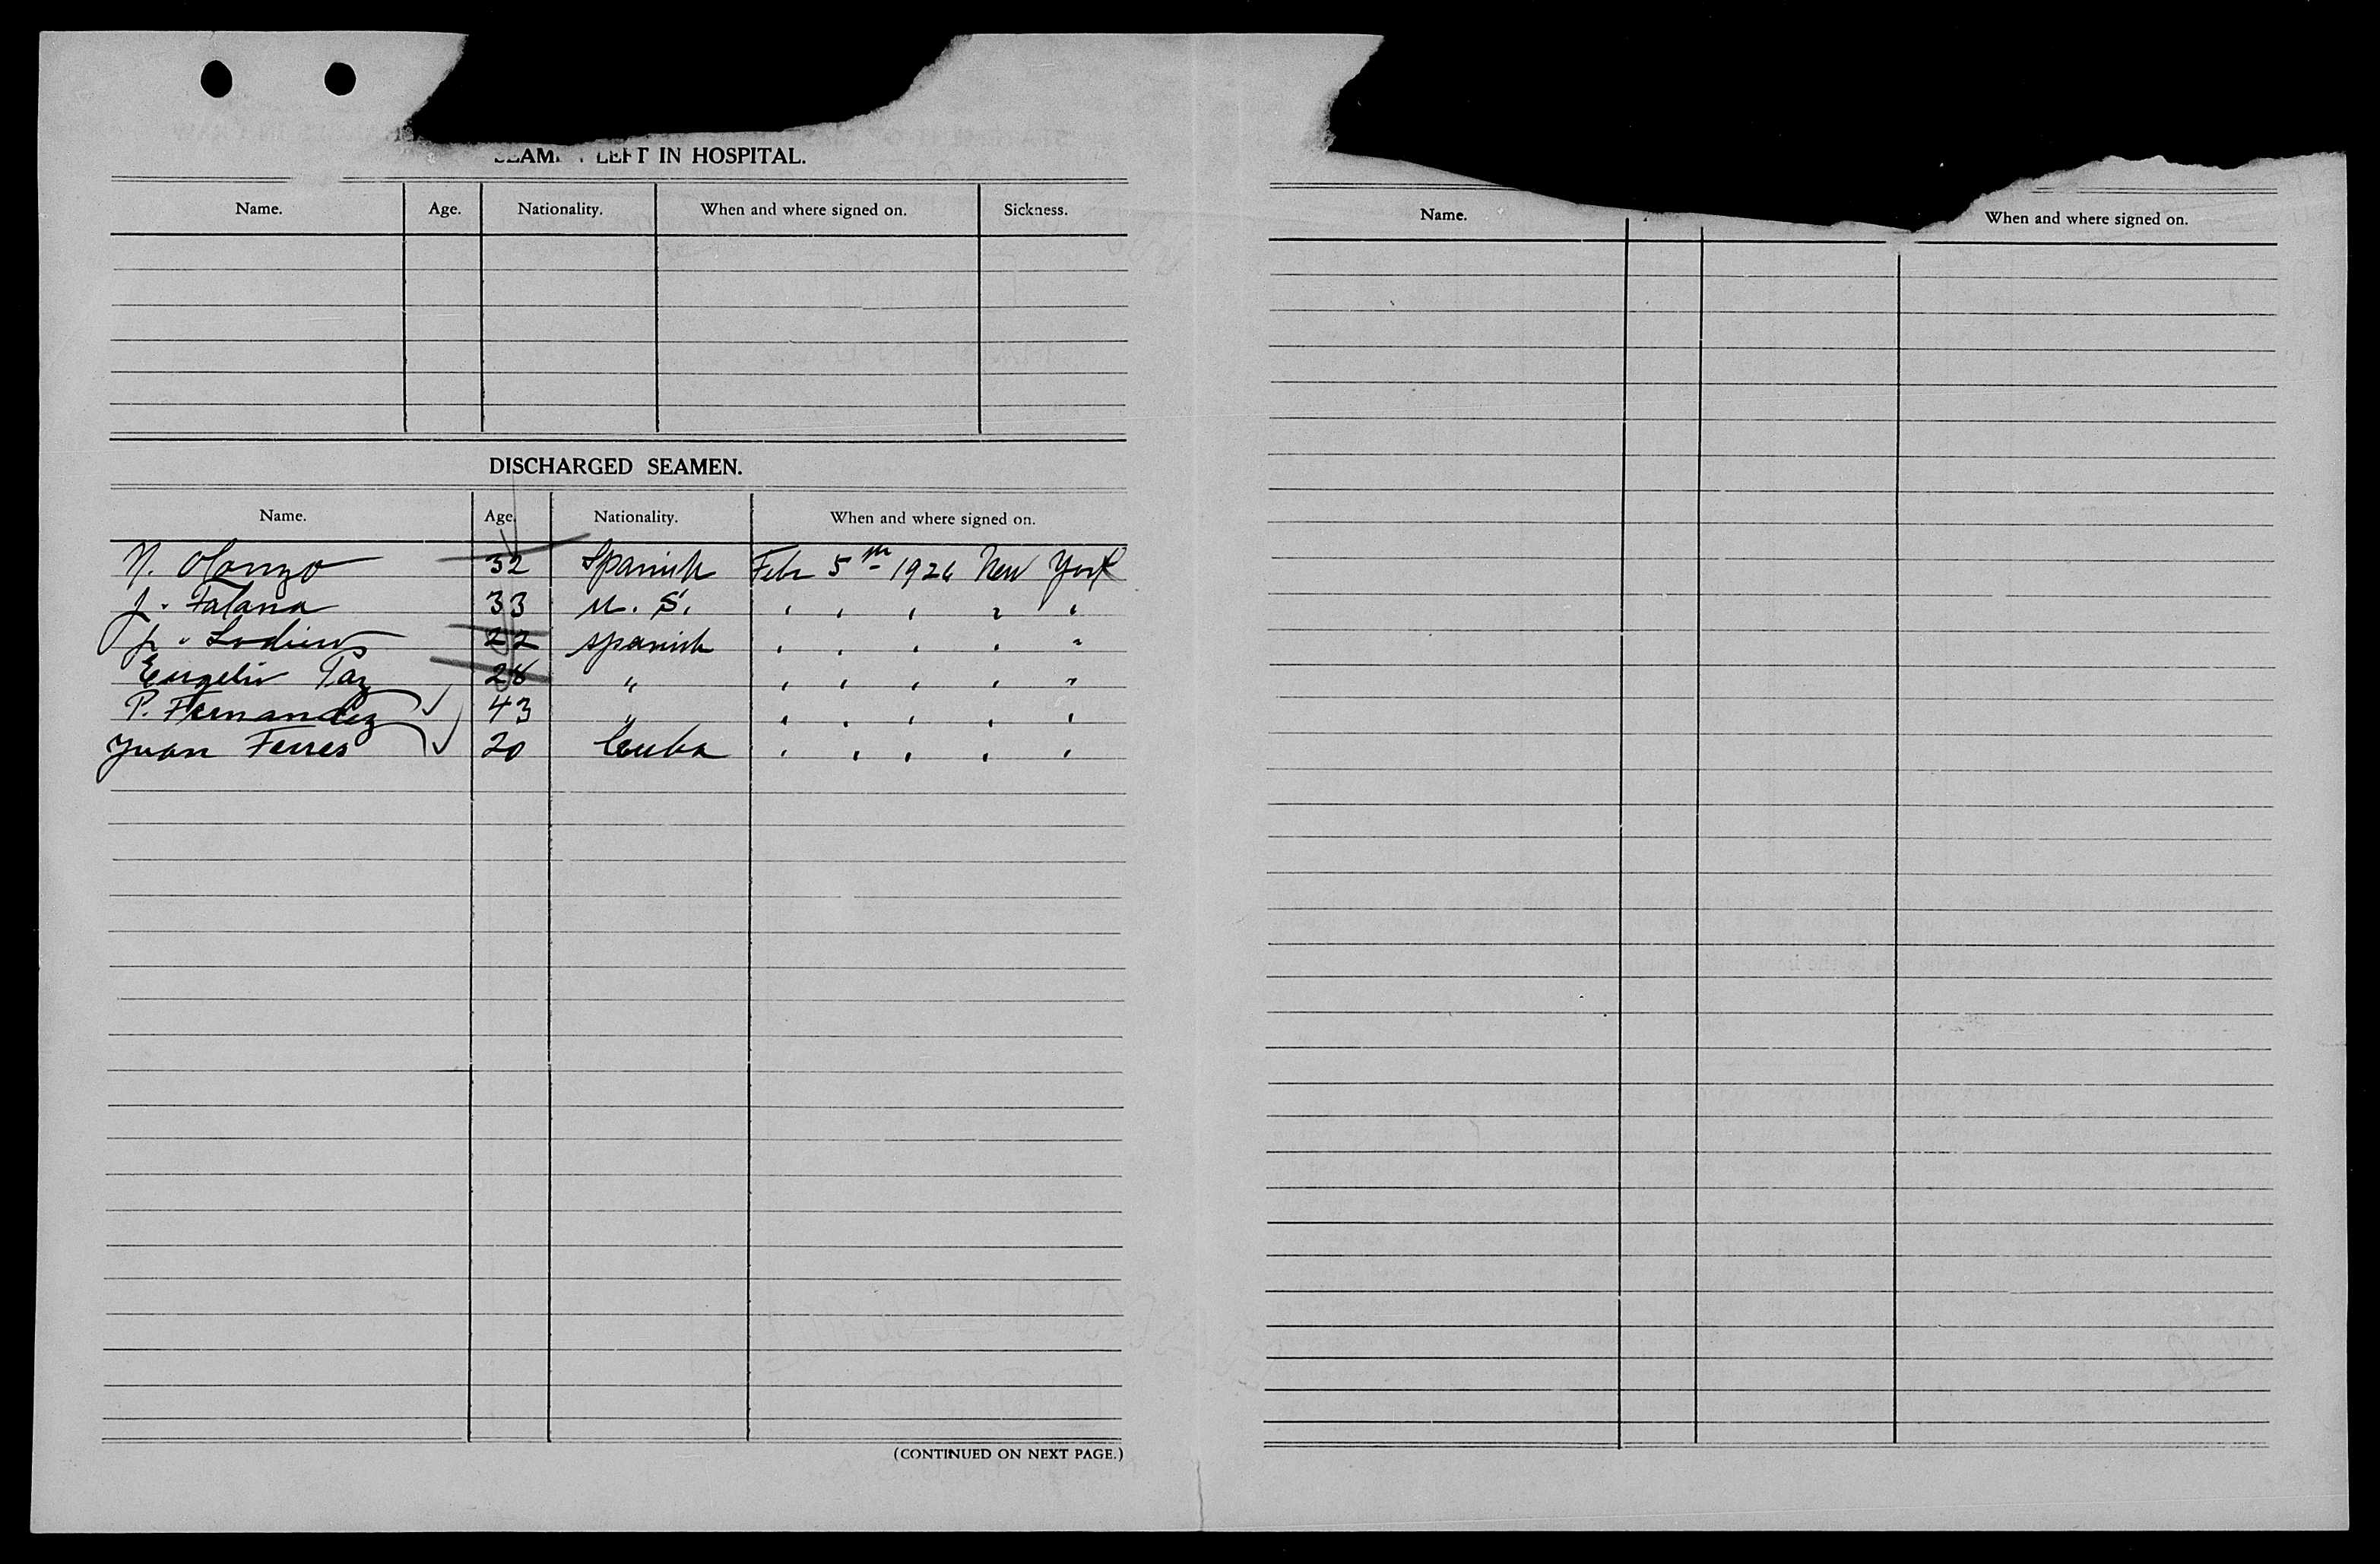 LEFT IN HOSPITAL.
Name. Age. Nationality. When and where signed on. Sickness.
DISCHARGED SEAMEN.
Name. Age. Nationality. When and where signed on.
N. Olonzo 32 Spanish Febr 5th 1926 New York
J. Falana 33 U. S. " " " " "
J. 22 Spanish " " " " "
Paz 28 " " " " " "
P. Fernandez 43 " " " " " "
Juan Ferres 20 Cuba " " " " "
(CONTINUED ON NEXT PAGE.)
Name. When and where signed on.